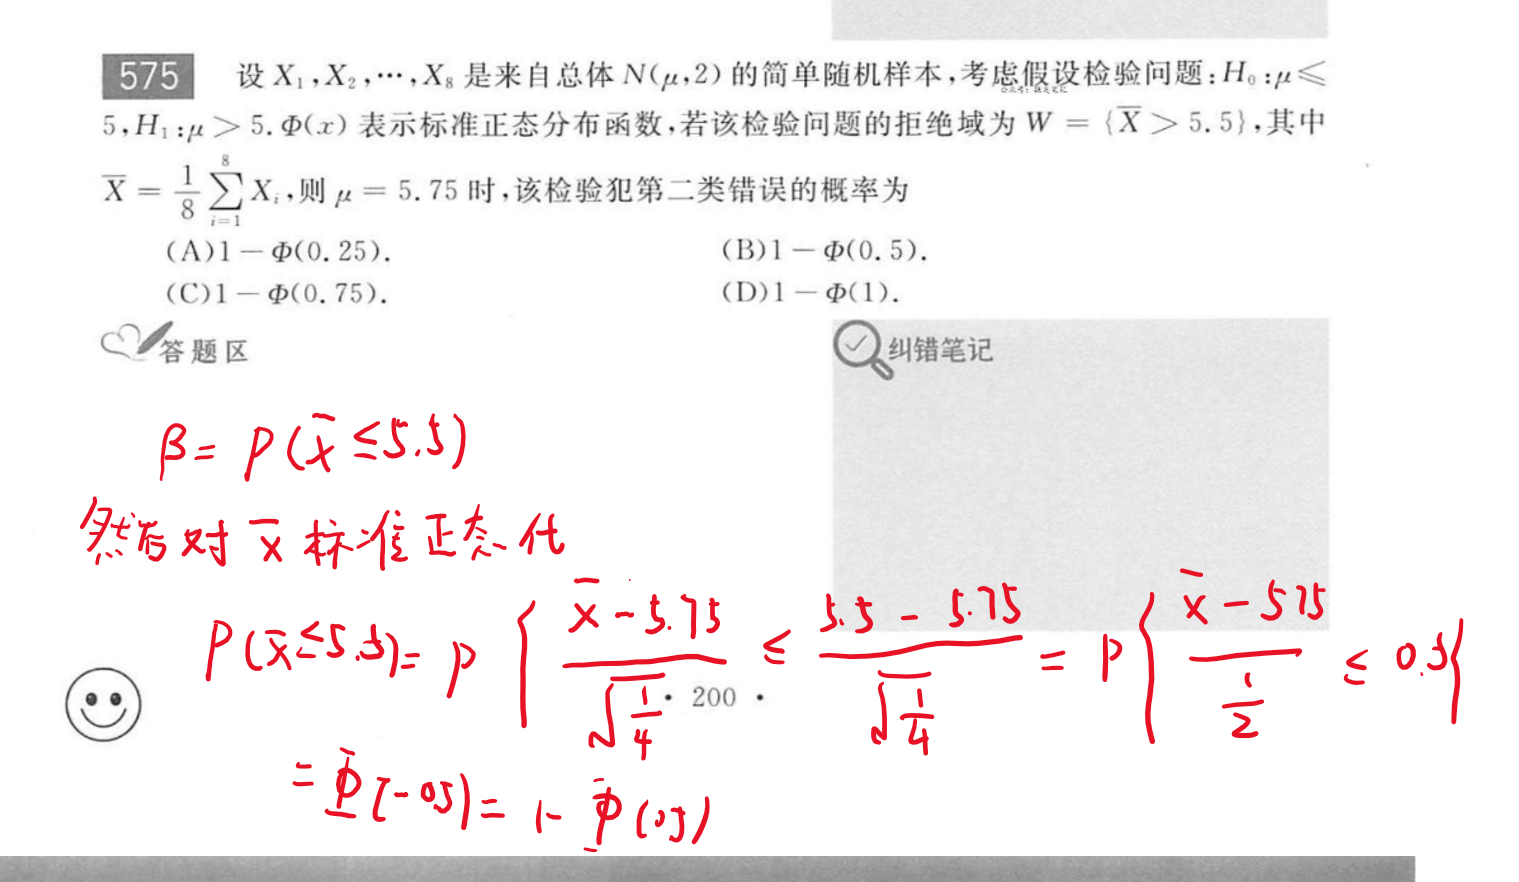 575 设 X₁,X₂,…,X₈ 是来自总体 N(μ,2) 的简单随机样本,考虑假设检验问题:H₀:μ⩽
5,H₁:μ > 5. Φ(x) 表示标准正态分布函数,若该检验问题的拒绝域为 W = {X̅ > 5.5},其中
X̅ = 1/8 ∑_{i=1}^{8} Xᵢ,则 μ = 5.75 时,该检验犯第二类错误的概率为
(A)1 − Φ(0.25). (B)1 − Φ(0.5).
(C)1 − Φ(0.75). (D)1 − Φ(1).
答题区
纠错笔记
β = P(x̅ ≤5.5)
然后对 x̅ 标准正态化
P(x̅≤5.5)= P { (x̅ − 5.75)/√(1/4) ≤ (5.5 − 5.75)/√(1/4) = P { (x̅ − 575)/(1/2) ≤ 0.5}
· 200 ·
= Φ(−05) = 1− Φ(05)